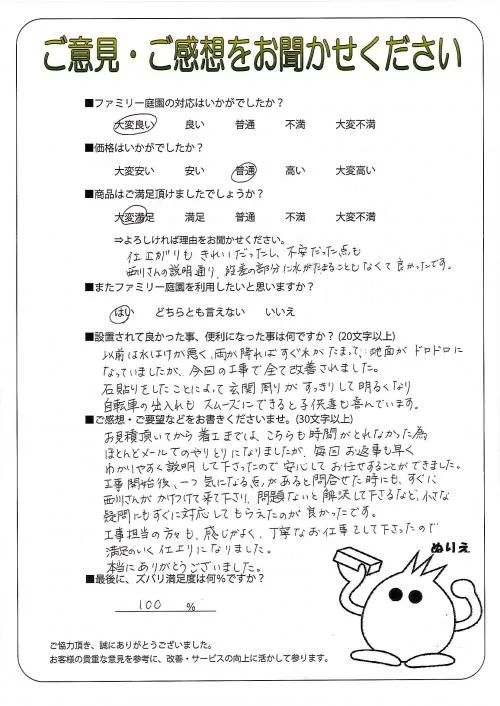 ご意見・ご感想をお聞かせください
■ファミリー庭園の対応はいかがでしたか？
大変良い 良い 普通 不満 大変不満
■価格はいかがでしたか？
大変安い 安い 普通 高い 大変高い
■商品はご満足頂けましたでしょうか？
大変満足 満足 普通 不満 大変不満
⇒よろしければ理由をお聞かせください。
仕上がりも きれいだったし、不安だった点も
西川さんの説明通り、段差の部分に水がたまることもなくて良かったです。
■またファミリー庭園を利用したいと思いますか？
はい どちらとも言えない いいえ
■設置されて良かった事、便利になった事は何ですか？(20文字以上)
以前は水はけが悪く、雨が降ればすぐ水がたまって、地面がドロドロに
なっていましたが、今回の工事で全て改善されました。
石貼りをしたことによって玄関周りがすっきりして明るくなり
自転車の出入れもスムーズにできると子供達も喜んでいます。
■ご感想・ご要望などをお書きくださいませ。(30文字以上)
お見積頂いてから着工までは、こちらも時間がとれなかった為
ほとんどメールでのやりとりになりましたが、毎回お返事も早く
わかりやすく説明して下さったので安心してお任せすることができました。
工事開始後、一つ気になる点があると問合せた時にも、すぐに
西川さんがかけつけて来て下さり、問題ないと解決して下さるなど、小さな
疑問にもすぐに対応してもらえたのが良かったです。
工事担当の方々も、感じがよく、丁寧なお仕事をして下さったので
満足のいく仕上りになりました。
本当にありがとうございました。
■最後に、ズバリ満足度は何％ですか？
100 ％
ぬりえ
ご協力頂き、誠にありがとうございました。
お客様の貴重な意見を参考に、改善・サービスの向上に活かして参ります。